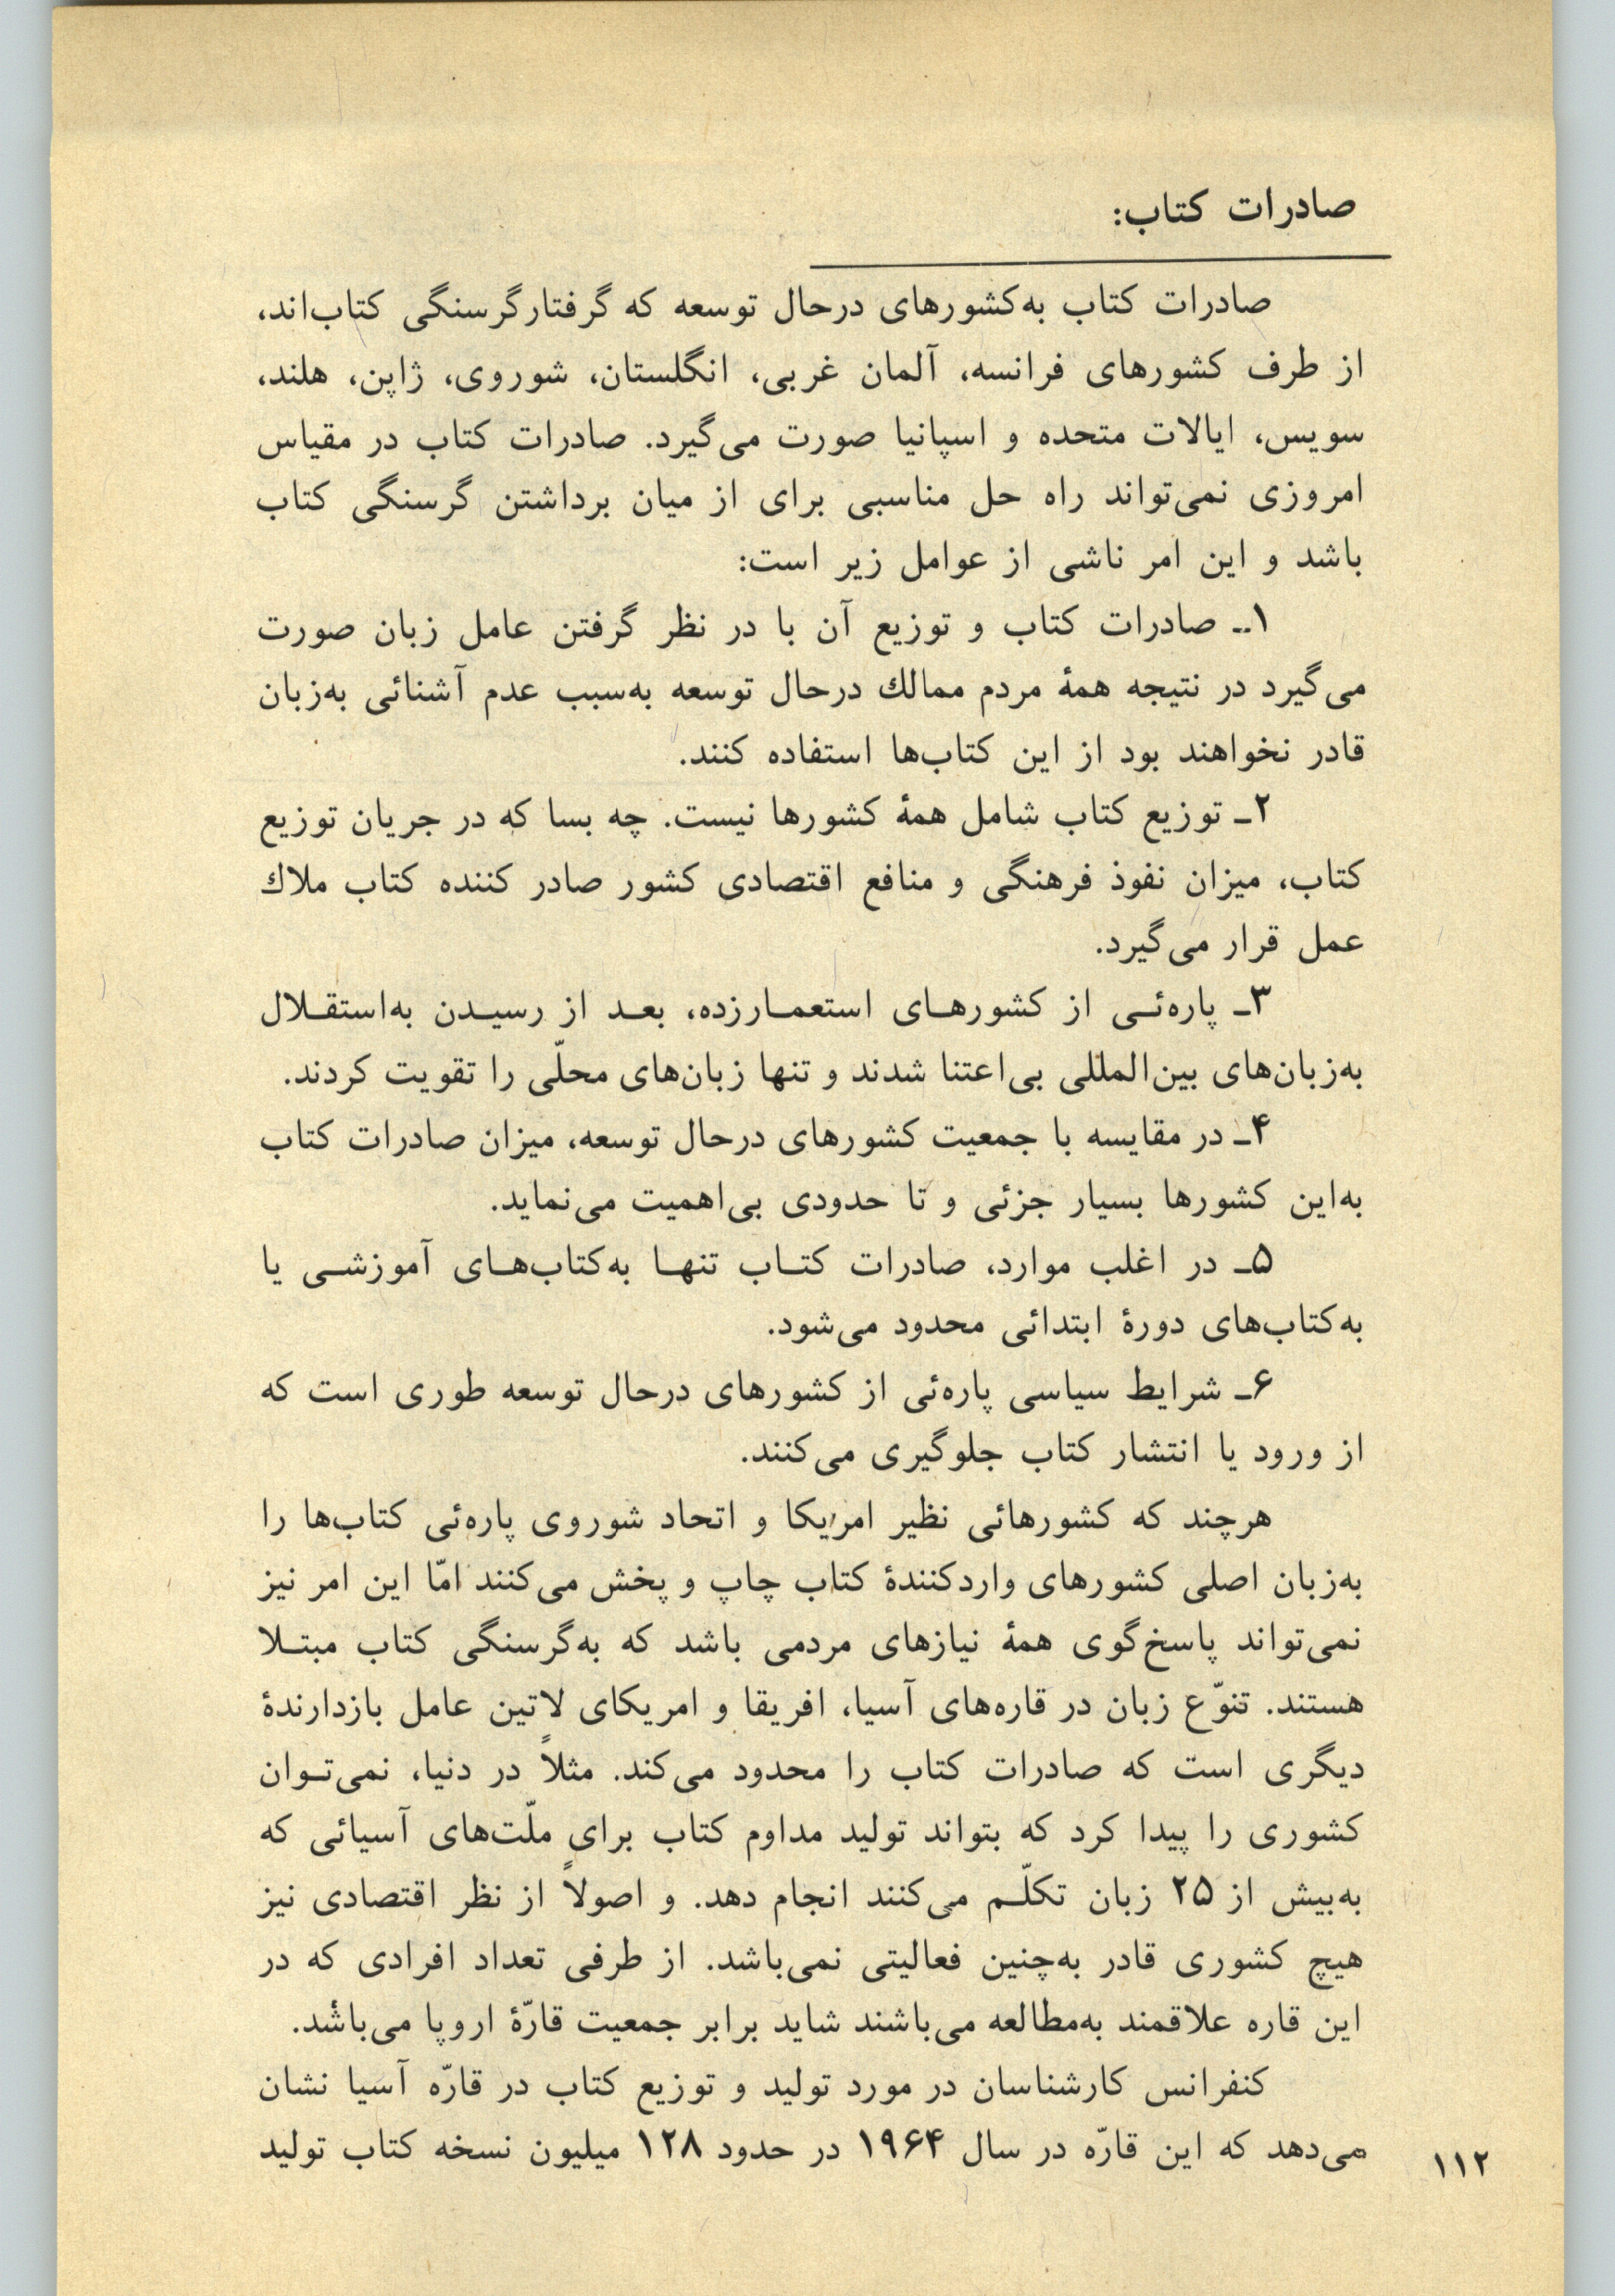 صادرات کتاب:
صادرات کتاب به‌کشورهای درحال توسعه که گرفتار گرسنگی کتاب‌اند،
از طرف کشورهای فرانسه، آلمان غربی، انگلستان، شوروی، ژاپن، هلند،
سویس، ایالات متحده و اسپانیا صورت می‌گیرد. صادرات کتاب در مقیاس
امروزی نمی‌تواند راه حل مناسبی برای از میان برداشتن گرسنگی کتاب
باشد و این امر ناشی از عوامل زیر است:
۱ـ صادرات کتاب و توزیع آن با در نظر گرفتن عامل زبان صورت
می‌گیرد در نتیجه همهٔ مردم ممالك درحال توسعه به‌سبب عدم آشنائی به‌زبان
قادر نخواهند بود از این کتاب‌ها استفاده کنند.
۲ـ توزیع کتاب شامل همهٔ کشورها نیست. چه بسا که در جریان توزیع
کتاب، میزان نفوذ فرهنگی و منافع اقتصادی کشور صادر کننده کتاب ملاك
عمل قرار می‌گیرد.
۳ـ پاره‌ئـی از کشورهـای استعمـارزده، بعـد از رسیـدن به‌استقـلال
به‌زبان‌های بین‌المللی بی‌اعتنا شدند و تنها زبان‌های محلّی را تقویت کردند.
۴ـ در مقایسه با جمعیت کشورهای درحال توسعه، میزان صادرات کتاب
به‌این کشورها بسیار جزئی و تا حدودی بی‌اهمیت می‌نماید.
۵ـ در اغلب موارد، صادرات کتـاب تنهـا به‌کتاب‌هـای آموزشـی یا
به‌کتاب‌های دورهٔ ابتدائی محدود می‌شود.
۶ـ شرایط سیاسی پاره‌ئی از کشورهای درحال توسعه طوری است که
از ورود یا انتشار کتاب جلوگیری می‌کنند.
هرچند که کشورهائی نظیر امریکا و اتحاد شوروی پاره‌ئی کتاب‌ها را
به‌زبان اصلی کشورهای واردکنندهٔ کتاب چاپ و پخش می‌کنند امّا این امر نیز
نمی‌تواند پاسخ‌گوی همهٔ نیازهای مردمی باشد که به‌گرسنگی کتاب مبتـلا
هستند. تنوّع زبان در قاره‌های آسیا، افریقا و امریکای لاتین عامل بازدارندهٔ
دیگری است که صادرات کتاب را محدود می‌کند. مثلاً در دنیا، نمی‌تـوان
کشوری را پیدا کرد که بتواند تولید مداوم کتاب برای ملّت‌های آسیائی که
به‌بیش از ۲۵ زبان تکلّـم می‌کنند انجام دهد. و اصولاً از نظر اقتصادی نیز
هیچ کشوری قادر به‌چنین فعالیتی نمی‌باشد. از طرفی تعداد افرادی که در
این قاره علاقمند به‌مطالعه می‌باشند شاید برابر جمعیت قارّهٔ اروپا می‌باشد.
کنفرانس کارشناسان در مورد تولید و توزیع کتاب در قارّه آسیا نشان
می‌دهد که این قارّه در سال ۱۹۶۴ در حدود ۱۲۸ میلیون نسخه کتاب تولید
۱۱۲